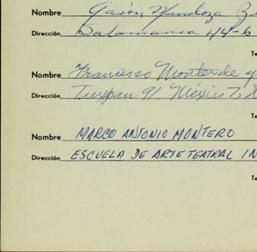 Nombre Garón, Mendoza
Dirección Salamanca 44-6
Te
Nombre Francisco Monterde y
Dirección Tuxpan 91 México 7, D
Te
Nombre MARCO ANTONIO MONTERO
Dirección ESCUELA DE ARTE TEATRAL IN
Te